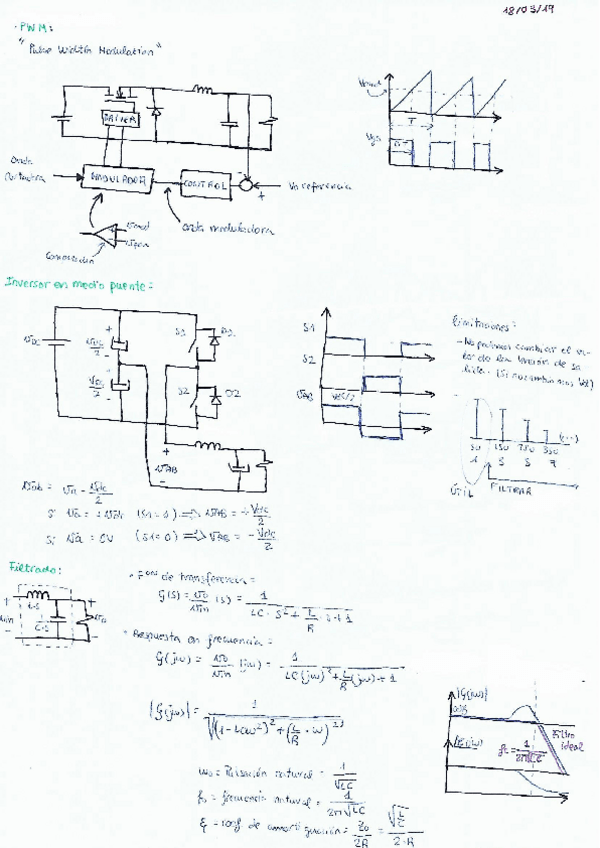 18/03/19
- PWM:
"Pulse Width Modulation"
DRIVER
T
Onda
Portadora
MODULADOR
CONTROL
+
Vo referencia
Onda moduladora
Comparador
Inversor en medio puente:
S1
D1
S2
D2
+
-
S1
S2
Limitaciones:
- No podemos cambiar el va-
lor de la tensión de sa-
lida. (Si no cambiamos Vdc)
50 150 250 350 (...)
ÚTIL
FILTRAR
vAB = va - Vdc/2
Si va = +Vdc (S1=1) => vAB = +Vdc/2
Si va = 0V (S1=0) => vAB = -Vdc/2
Filtrado:
- F^on de transferencia:
G(s) = vo/vin (s) = 1/(LC·s² + L/R·s+1)
L·s
C·s
- Respuesta en frecuencia:
G(jw) = vo/vin (jw) = 1/(LC(jw)² + L/R(jw)+1)
|G(jw)| = 1/√((1-LCw²)² + (L/R·w)²)
|G(jw)|
Filtro
ideal
fc = 1/(2π√LC)
wo = Pulsación natural = 1/√LC
fo = frecuencia natural = 1/(2π√LC)
ξ = coef de amortiguación = Zo/2R = √(L/C)/(2·R)